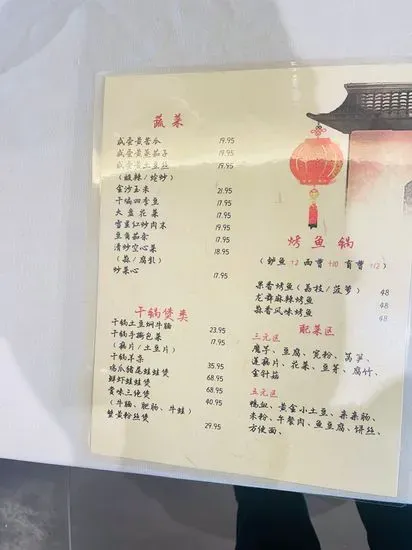 蔬菜
咸蛋黄苦瓜 19.95
咸蛋黄蒸茄子 19.95
咸蛋黄土豆丝 19.95
(酸辣/炝炒)
金沙玉米 21.95
干煸四季鱼 17.95
大盘花菜 17.95
雪里红炒肉末 19.95
豆角茄条 19.95
清炒空心菜 18.95
(蒜/腐乳)
炒菜心 17.95
干锅煲类
干锅土豆焖牛腩 23.95
干锅手撕包菜 17.95
(藕片/土豆片)
干锅羊杂 35.95
丝瓜猪尾蛙蛙煲 68.95
鲜虾蛙蛙煲 68.95
卖味三绝煲 40.95
(牛腩、肥肠、牛蛙)
蟹黄粉丝煲 29.95
烤鱼锅
(鲈鱼+3 面曹+10 盲曹+12)
果香烤鱼(荔枝/菠萝) 48
龙虾麻辣烤鱼 48
蒜香风味烤鱼 48
配菜区
三元区
魔芋、豆腐、宽粉、莴笋、
莲藕片、花菜、豆芽、腐竹、
金针菇
五元区
鸭血、黄金小土豆、亲亲肠、
米粉、午餐肉、鱼豆腐、饼丝、
方便面、